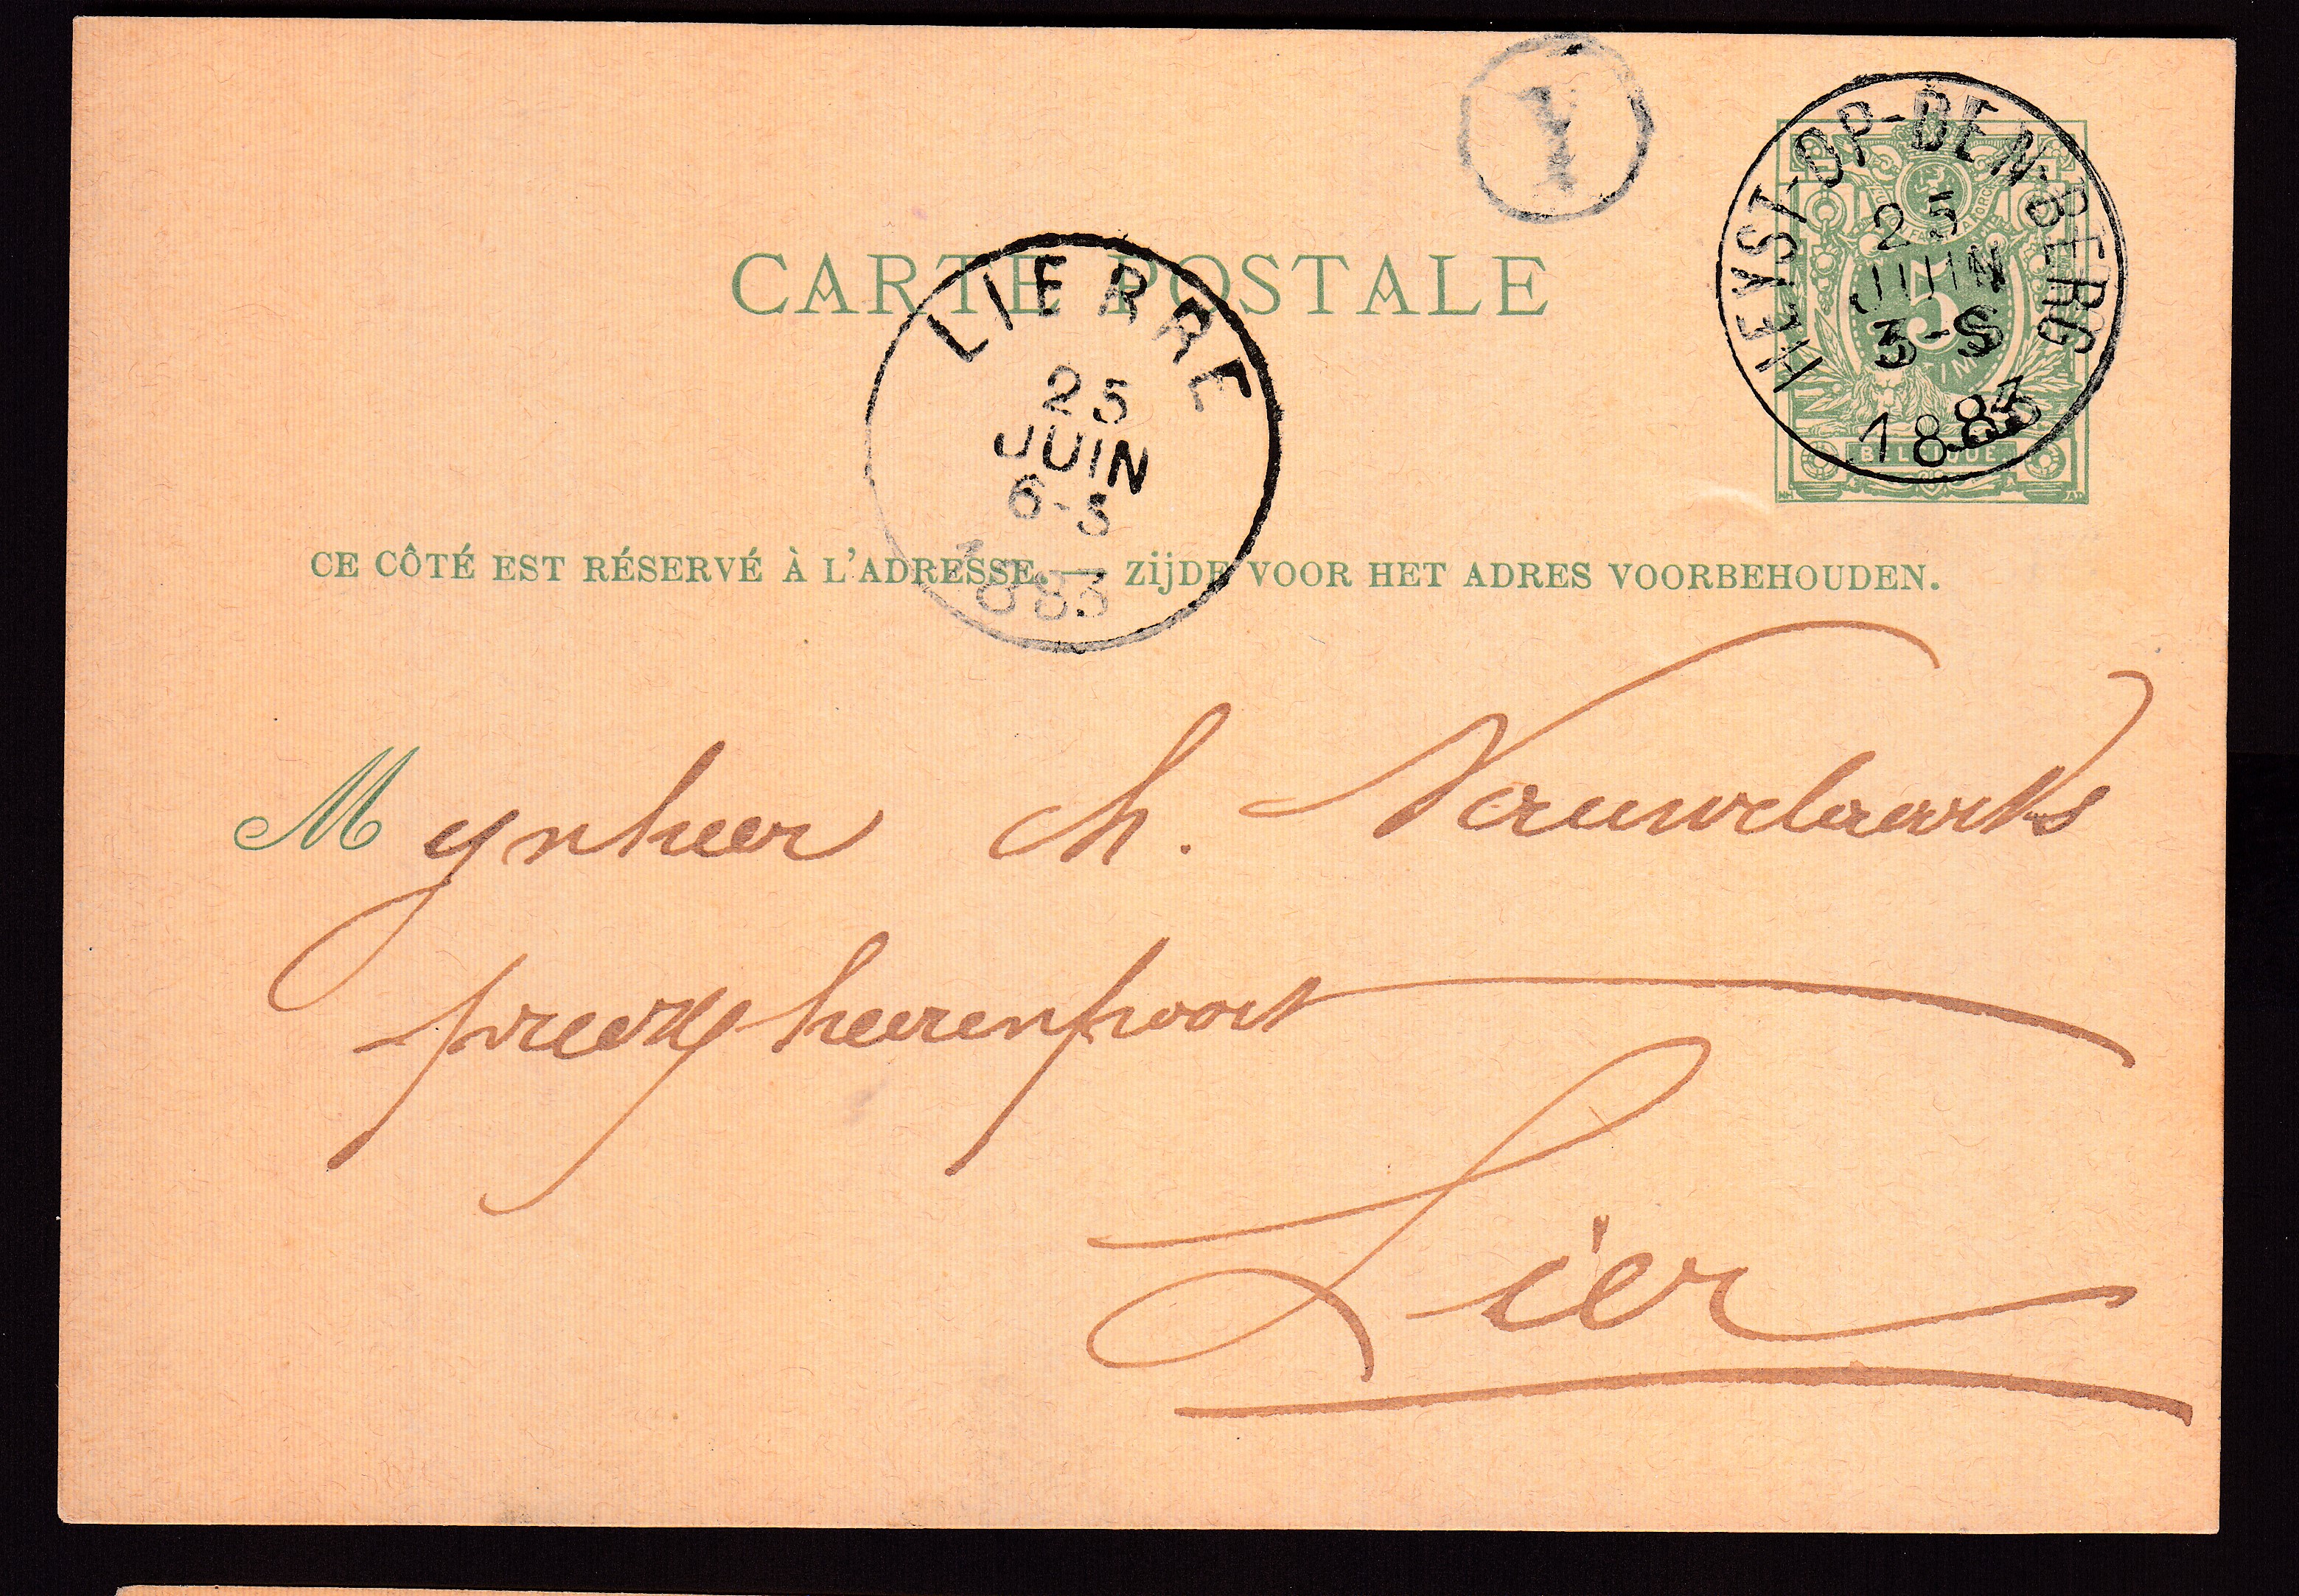 1
HEYST-OP-DEN-BERG
25
JUIN
3-S
1883
5
BELGIQUE
CARTE POSTALE
LIERRE
25
JUIN
6-S
1883
CE CÔTÉ EST RÉSERVÉ À L'ADRESSE. — ZijDE VOOR HET ADRES VOORBEHOUDEN.
Mynheer Ch.
Lier